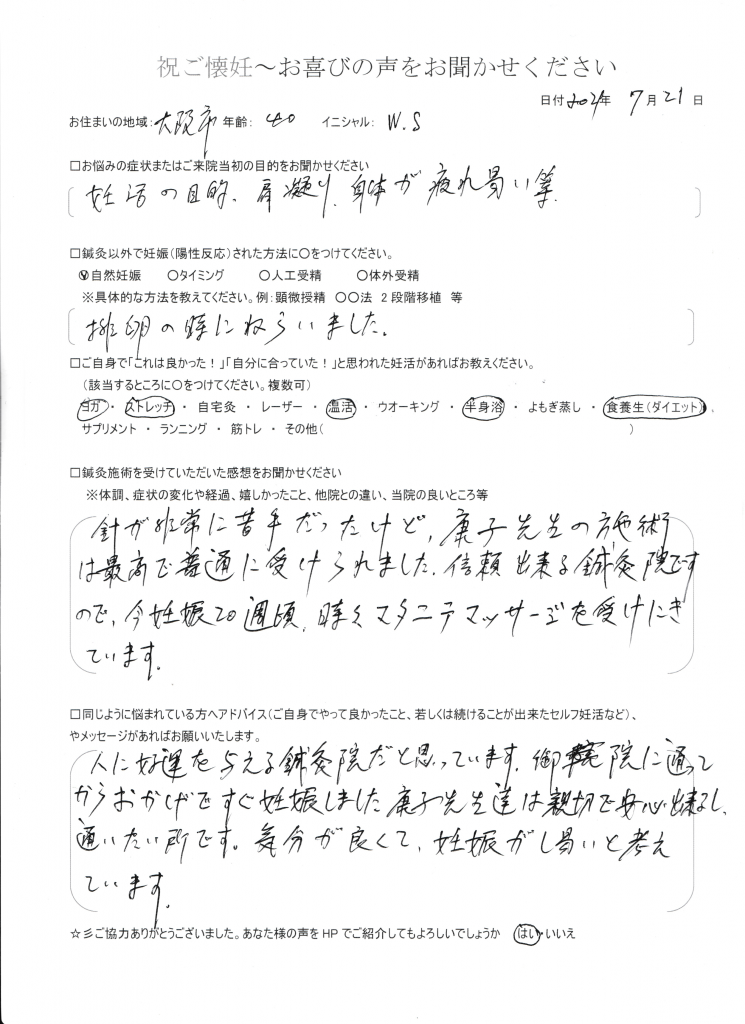 祝ご懐妊～お喜びの声をお聞かせください
日付2024年 7月21日
お住まいの地域：大阪市 年齢： 40 イニシャル： W.S
□お悩みの症状またはご来院当初の目的をお聞かせください
妊活の目的、肩凝り、身体が疲れ易い等.
□鍼灸以外で妊娠（陽性反応）された方法に〇をつけてください。
〇自然妊娠 〇タイミング 〇人工受精 〇体外受精
※具体的な方法を教えてください。例：顕微授精 〇〇法 2段階移植 等
排卵の時にねらいました。
□ご自身で「これは良かった！」「自分に合っていた！」と思われた妊活があればお教えください。
（該当するところに〇をつけてください。複数可）
ヨガ ・ ストレッチ ・ 自宅灸 ・ レーザー ・ 温活 ・ ウオーキング ・ 半身浴 ・ よもぎ蒸し ・ 食養生（ダイエット） ・
サプリメント ・ ランニング ・ 筋トレ ・ その他（ ）
□鍼灸施術を受けていただいた感想をお聞かせください
※体調、症状の変化や経過、嬉しかったこと、他院との違い、当院の良いところ等
針が非常に苦手だったけど、康子先生の施術
は最高で普通に受けられました。信頼出来る鍼灸院です
ので、今妊娠20週頃、時々マタニテマッサージを受けにき
ています。
□同じように悩まれている方へアドバイス（ご自身でやって良かったこと、若しくは続けることが出来たセルフ妊活など）、
やメッセージがあればお願いいたします。
人に好運を与える鍼灸院だと思っています。御院に通って
からおかげですぐ妊娠しました。康子先生達は親切で安心出来るし、
通いたい所です。気分が良くて、妊娠がし易いと考え
ています。
☆彡ご協力ありがとうございました。あなた様の声をHPでご紹介してもよろしいでしょうか はい・いいえ